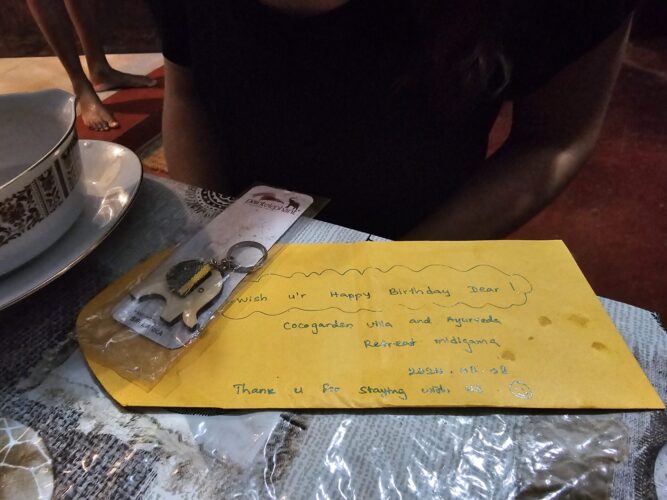 paintelephant
Wish u'r Happy Birthday Dear !
Cocogarden villa and Ayurveda
Retreat midigama
Thank u for staying with us .